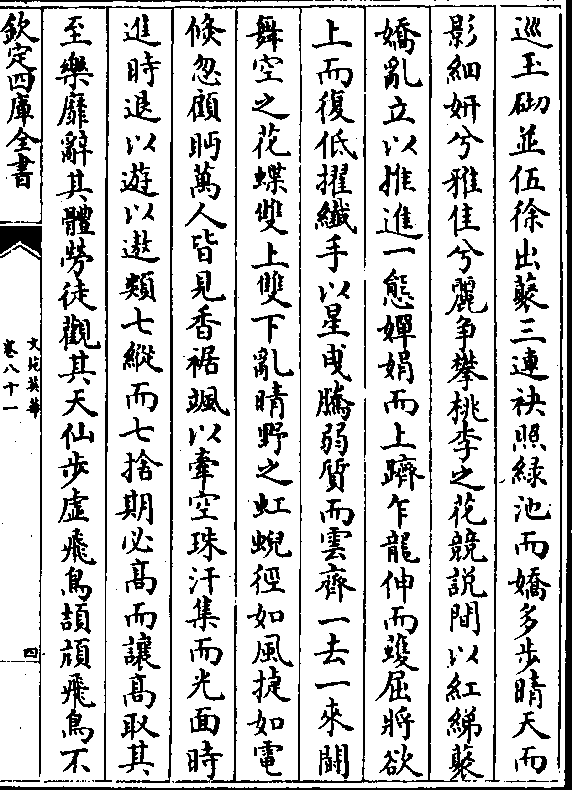 巡玉砌並伍徐出蘂三連袂照緑池而嬌多步晴天而
影細妍兮雅佳兮麗争攀桃李之花競說間以紅綈蘂
嬌亂立以推進一態嬋娟而上躋乍龍伸而蠖屈將欲
上而復低擢纖手以星曵騰弱質而雲齊一去一來鬪
舞空之花蝶雙上雙下亂晴野之虹蜺徑如風捷如電
倐忽顧眄萬人皆見香裾颯以牽空珠汗集而光面時
進時退以遊以遨類七縱而七捨期必高而讓高取其
至樂靡辭其體勞徒觀其天仙步虛飛鳥頡頏飛鳥不
欽定四庫全書
文苑英華
卷八十一
四